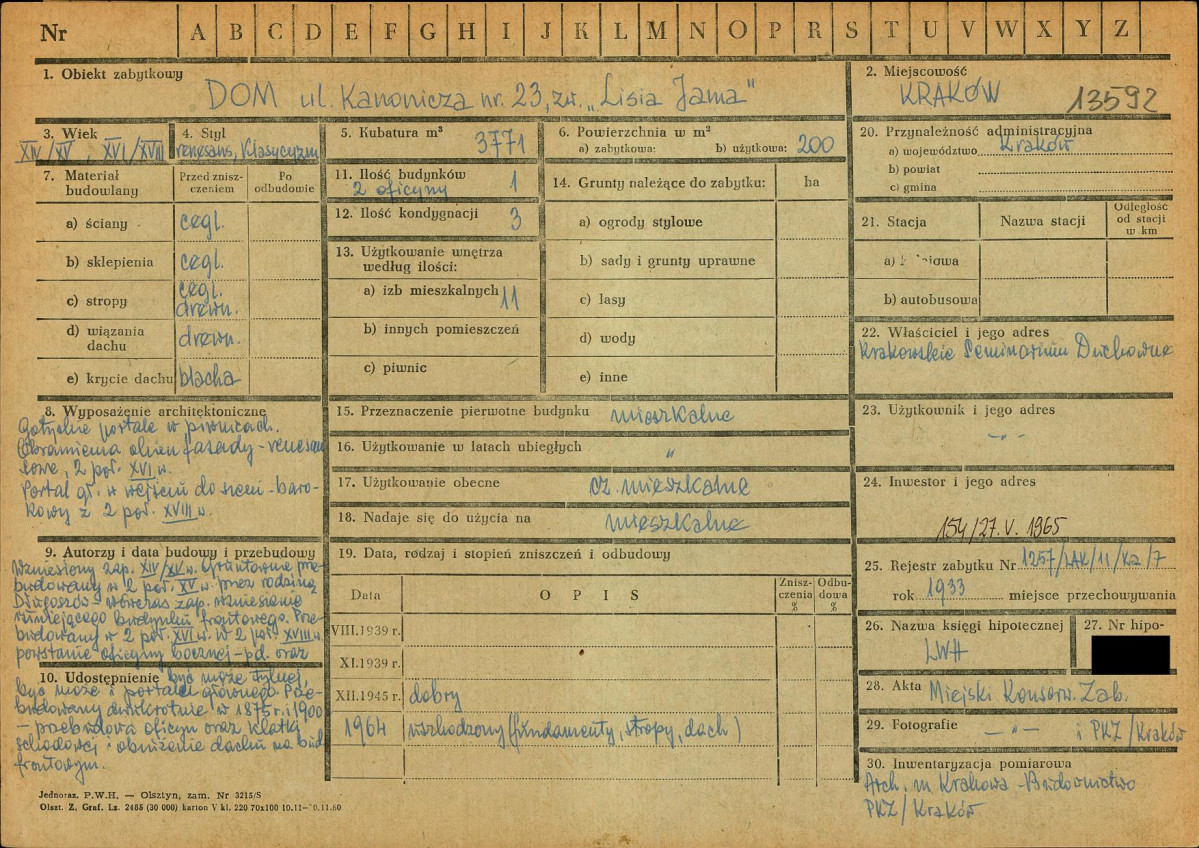 Nr A B C D E F G H I J K L M N O P R S T U V W X Y Z
1. Obiekt zabytkowy
DOM ul. Kanonicza nr. 23, zw. „Lisia Jama"
2. Miejscowość
KRAKÓW 13592
3. Wiek
XIV/XV, XVI/XVII
4. Styl
renesans, Klasycyzm
5. Kubatura m³
3771
6. Powierzchnia w m²
a) zabytkowa: b) użytkowa: 200
7. Materiał budowlany
Przed zniszczeniem
Po odbudowie
a) ściany cegl.
b) sklepienia cegl.
c) stropy cegl. drewn.
d) wiązania dachu drewn.
e) krycie dachu blacha
8. Wyposażenie architektoniczne
Gotyckie portale w piwnicach.
Obramienia okien fasady - renesan
sowe, 2 poł. XVI w.
Portal gł. w wejściu do sieni - baro-
kowy z 2 poł. XVIII w.
9. Autorzy i data budowy i przebudowy
Wzniesiony zap. XIV/XV w. Gruntownie prze-
budowany w 2 poł. XV w. przez rodzinę
Długoszów - wówczas zap. wzniesienie
istniejącego budynku frontowego. Prze-
budowany w 2 poł. XVI w. W 2 poł. XVIII w.
powstanie oficyny bocznej - pd. oraz
10. Udostępnienie
być może tylnej,
być może i portalu głównego. Prze-
budowany dwukrotnie w 1875 r. i 1900
- przebudowa oficyn oraz klatki
schodowej i obniżenie dachu na bud.
frontowym.
11. Ilość budynków 1
2 oficyny
12. Ilość kondygnacji 3
13. Użytkowanie wnętrza
według ilości:
a) izb mieszkalnych 11
b) innych pomieszczeń
c) piwnic
14. Grunty należące do zabytku: ha
a) ogrody stylowe
b) sady i grunty uprawne
c) lasy
d) wody
e) inne
15. Przeznaczenie pierwotne budynku mieszkalne
16. Użytkowanie w latach ubiegłych "
17. Użytkowanie obecne cz. mieszkalne
18. Nadaje się do użycia na mieszkalne
19. Data, rodzaj i stopień zniszczeń i odbudowy
Data OPIS Zniszczenia % Odbudowa %
VIII.1939 r.
XI.1939 r.
XII.1945 r. dobry
1964 uszkodzony (fundamenty, stropy, dach)
20. Przynależność administracyjna
a) województwo Kraków
b) powiat
c) gmina
21. Stacja Nazwa stacji Odległość od stacji w km
a)
b) autobusowa
22. Właściciel i jego adres
Krakowskie Seminarium Duchowne
23. Użytkownik i jego adres
- " -
24. Inwestor i jego adres
154/27. V. 1965
25. Rejestr zabytku Nr 1257/LAK/11/Kz/7
rok 1933 miejsce przechowywania
26. Nazwa księgi hipotecznej
LWH
27. Nr hipo-
28. Akta Miejski Konserw. Zab.
29. Fotografie - " - i PKZ/Kraków
30. Inwentaryzacja pomiarowa
Arch. m. Krakowa - Budownictwo
PKZ/Kraków
Jednoraz. P.W.H. — Olsztyn, zam. Nr 3215/S
Olszt. Z. Graf. Lz. 2465 (30 000) karton V kl. 220 70x100